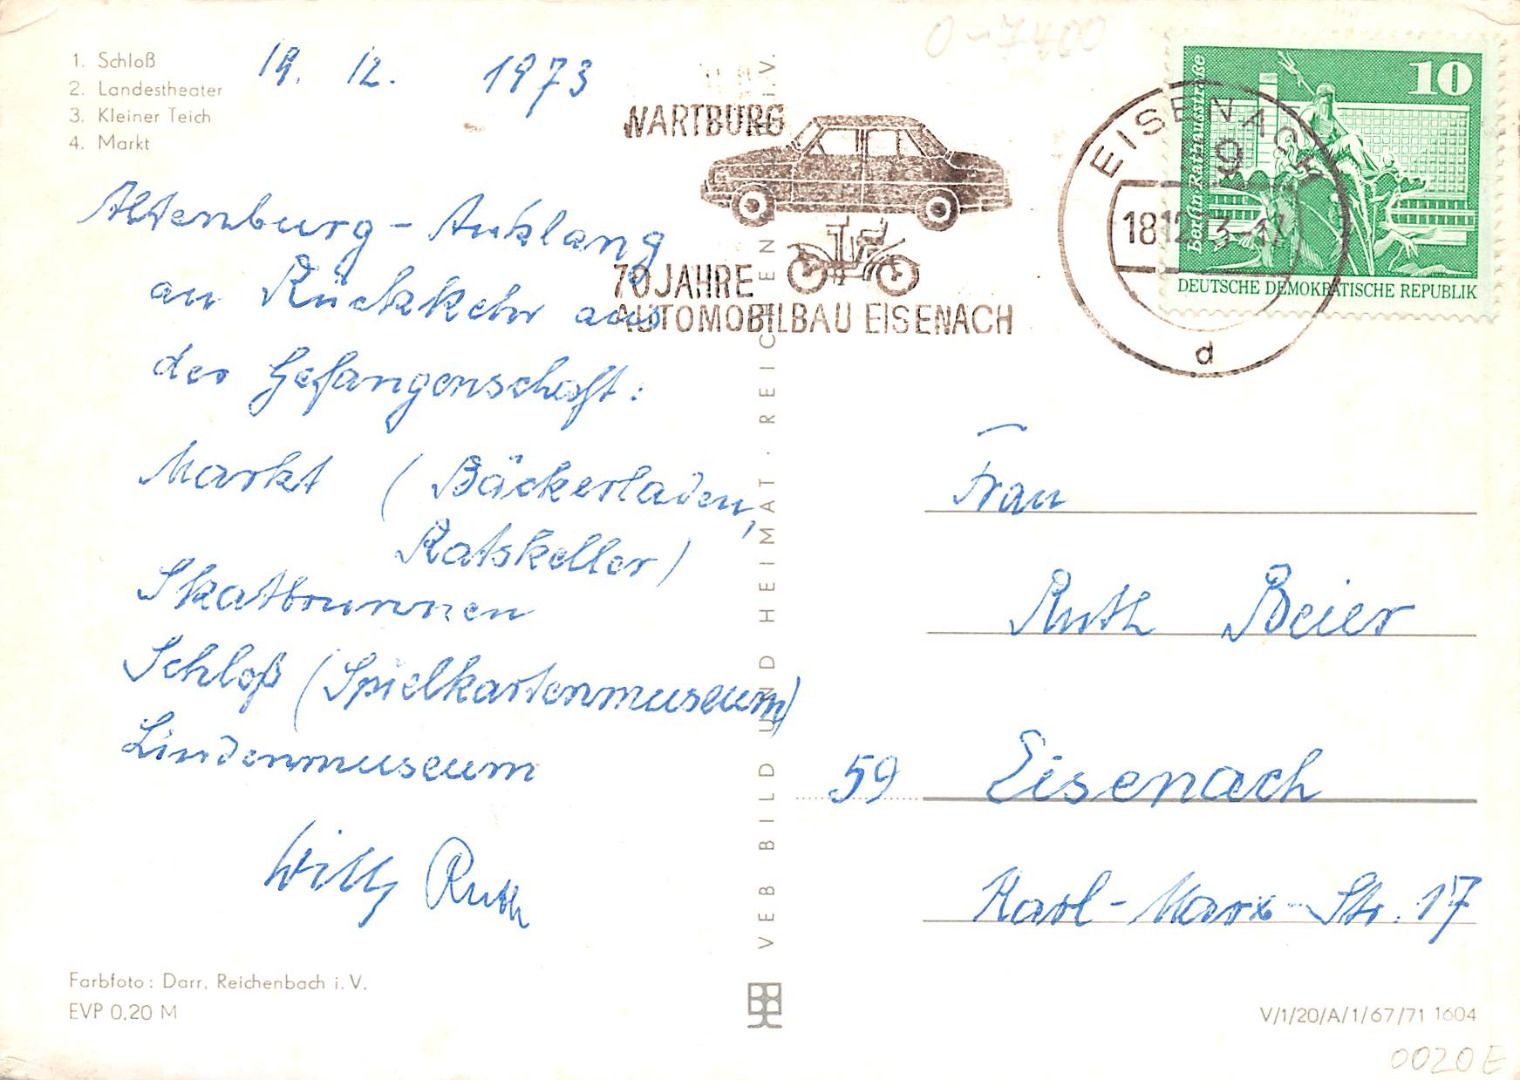 1. Schloß
2. Landestheater
3. Kleiner Teich
4. Markt
19. 12. 1973
Altenburg - Anklang
an Rückkehr aus
der Gefangenschaft:
Markt (Bäckerladen,
Ratskeller)
Skatbrunnen
Schloß (Spielkartenmuseum)
Lindenmuseum
Willy Ruth
Farbfoto: Darr, Reichenbach i. V.
EVP 0,20 M
VEB BILD UND HEIMAT · REICHENBACH i. V.
WARTBURG
70 JAHRE
AUTOMOBILBAU EISENACH
EISENACH
9
18.12.73-17
d
10
Berlin Rathausstraße
DEUTSCHE DEMOKRATISCHE REPUBLIK
0-7400
Frau
Ruth Beier
59 Eisenach
Karl-Marx-Str. 17
V/1/20/A/1/67/71 1604
0020E